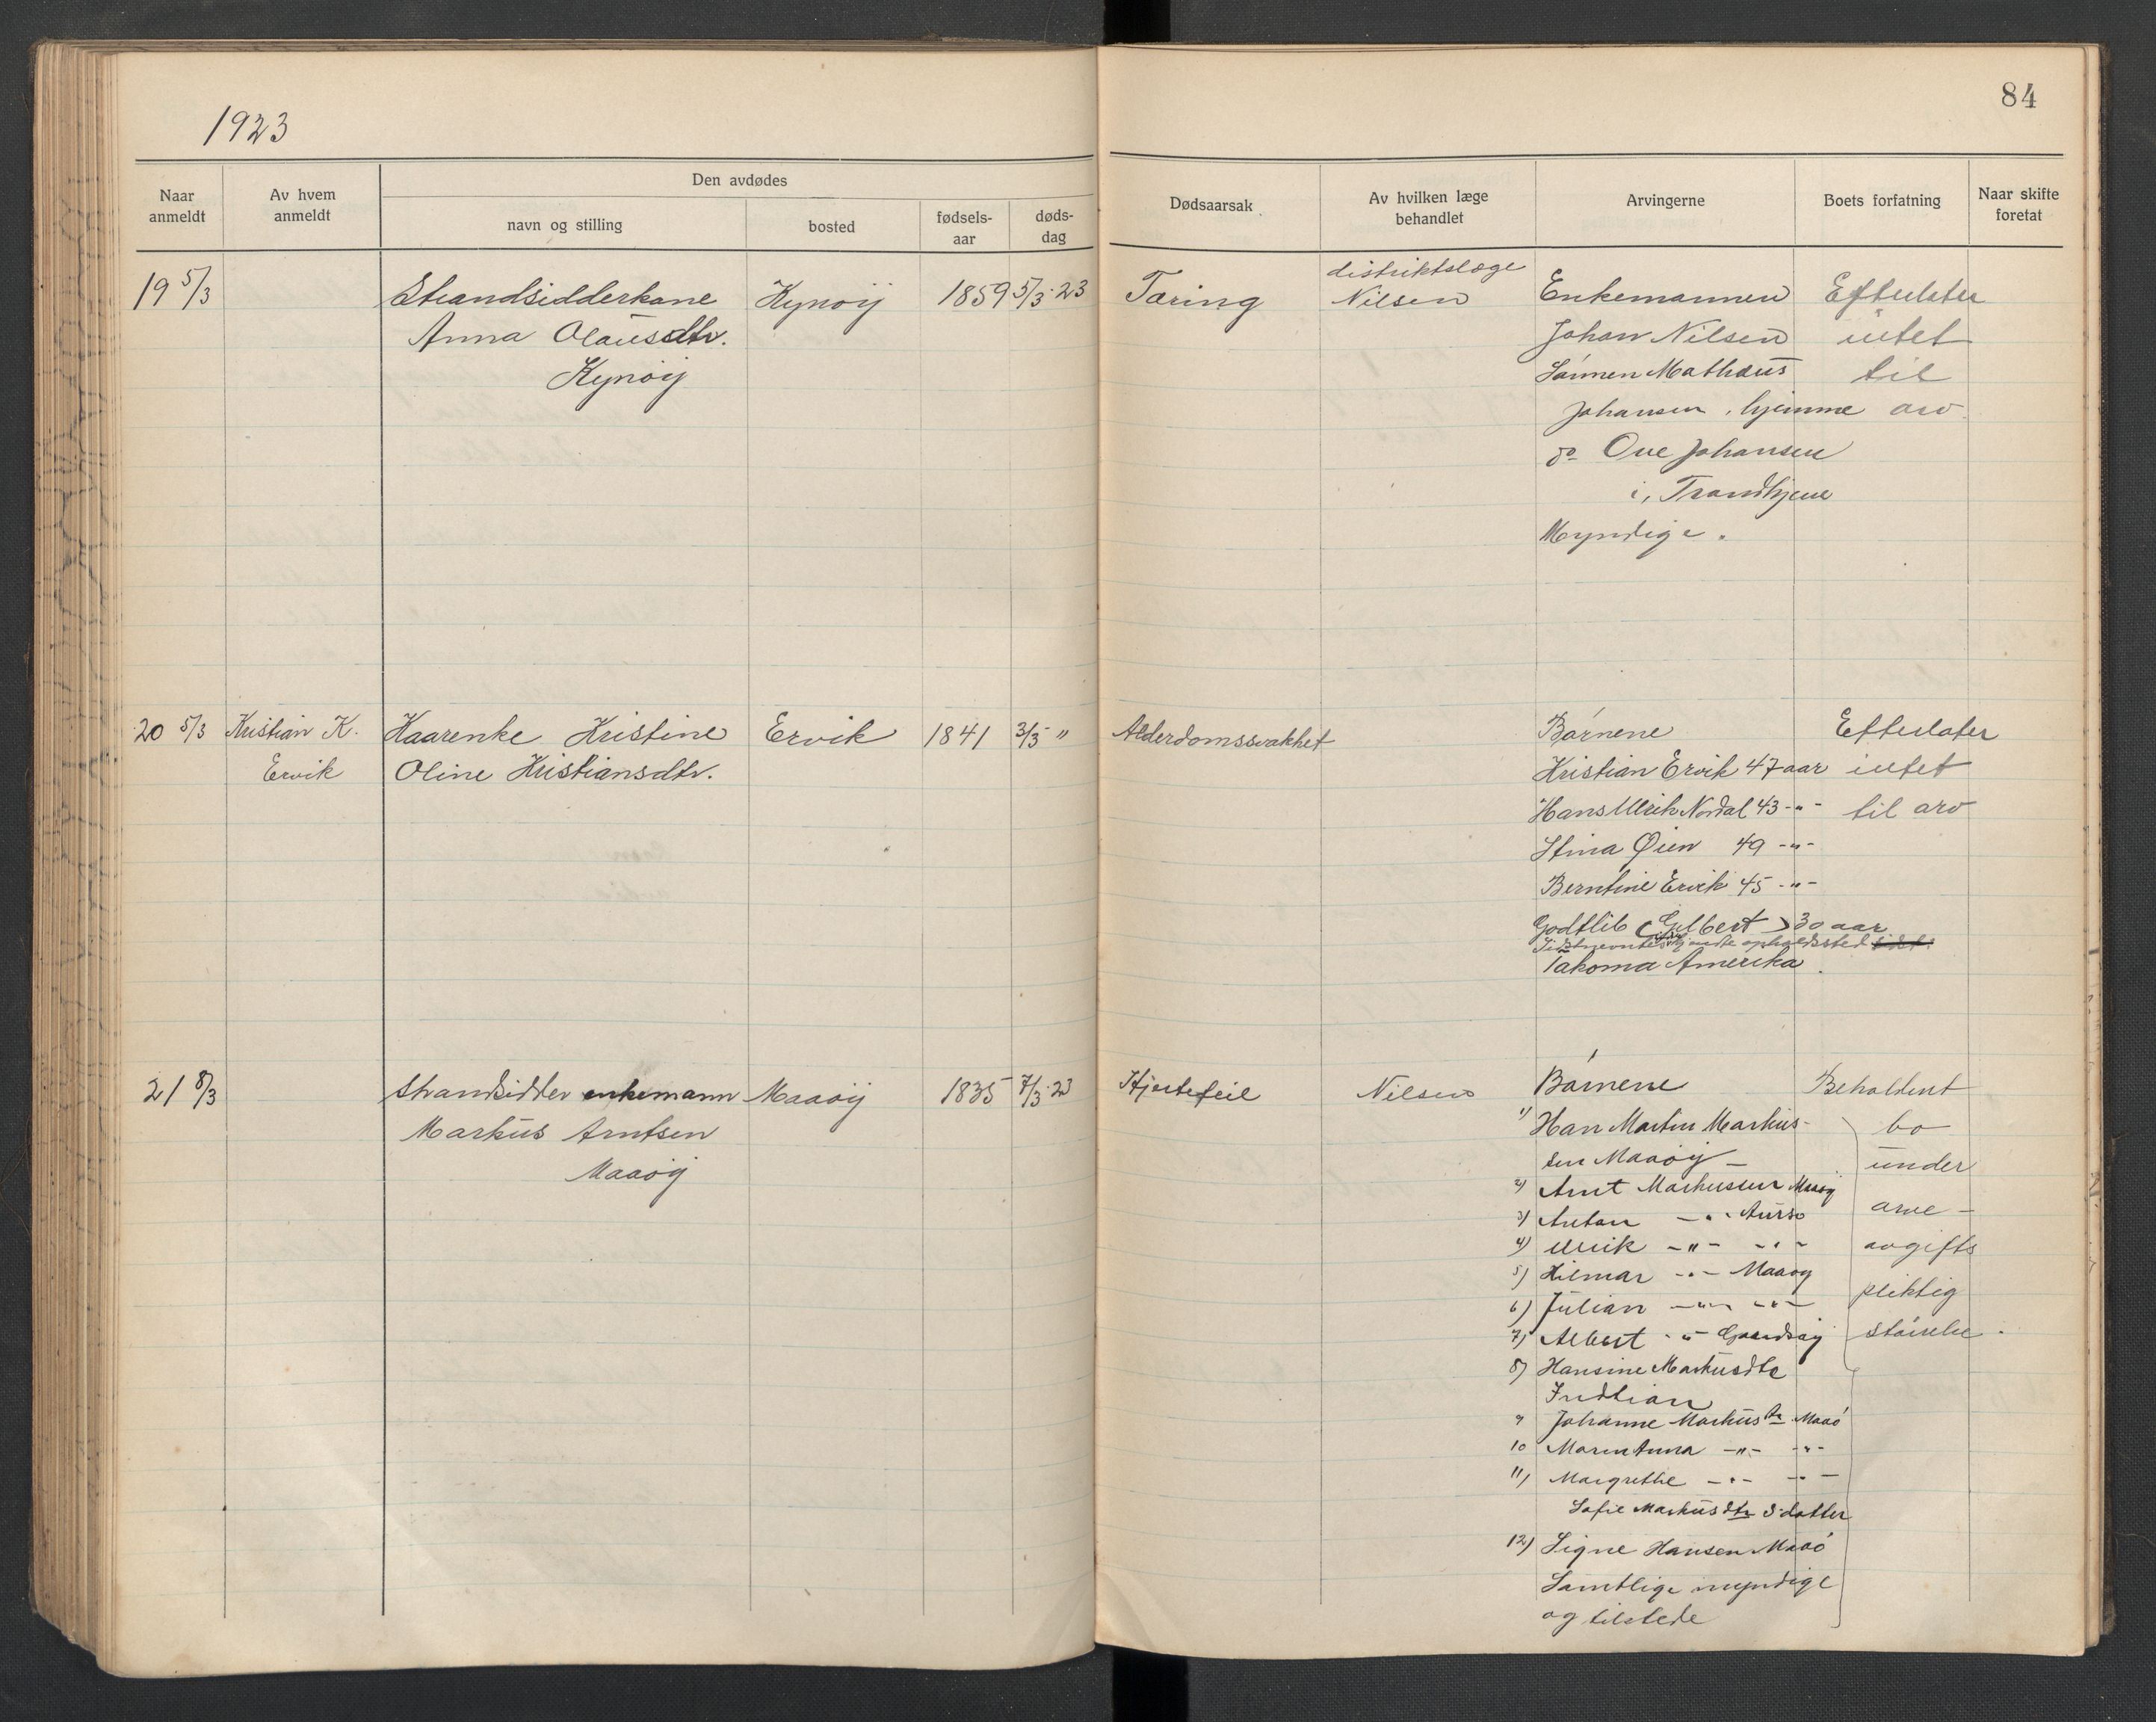 1923
84
Naar anmeldt
Av hvem anmeldt
Den avdødes
navn og stilling
bosted
fødsels-aar
døds-dag
Dødsaarsak
Av hvilken læge behandlet
Arvingerne
Boets forfatning
Naar skifte foretat
19 5/3
Strandsidderkone
Anna Olausdtr.
Kynöij
Kynöij
1859
5/3-23
Tæring
distriktslæge
Nilsen
Enkemannen
Johan Nilsen
Sönnen Mathæus
Johansen, hjemme
do Ove Johansen
i, Trondhjem
Myndige.
Efterlater
intet
til
arv.
20 5/3
Kristian K.
Ervik
Kaarenke Kristine
Oline Kristiansdtr.
Ervik
1841
3/3 "
Alderdomssvakhet
Börnene
Kristian Ervik 47 aar
Hans Ulrik Nordal 43 -"-
Stina Øien 49 -"-
Berntine Ervik 45 -"-
Godtlib (Gilbert) 30 aar
Sidstnevntes kjendte opholdssted
Takoma Amerika.
Efterlater
intet
til arv
21 8/3
Strandsidder enkemann
Markus Arntsen
Maaöij
Maaöij
1835
7/3-23
Hjertefeil
Nilsen
Börnene
1) Han Martin Markus-
sen Maaöij -
2) Arnt Markussen Maaöij
3) Anton -"- Aursö
4) Ulrik -"- -"-
5) Hilmar -"- Maaöy
6) Julian -"- -"-
7) Albert -"-
8) Hansine Markusdtr
Indlian
9 Johanne Markusdtr Maaö
10 Maren Anna -"- -"-
11) Margrethe -"- -"-
Sofie Markusdtr's datter
12) Signe Hansen Maaö
Samtlige myndige
og tilstede
Beholdent
bo
under
arve-
avgifts
pliktig
störrelse.